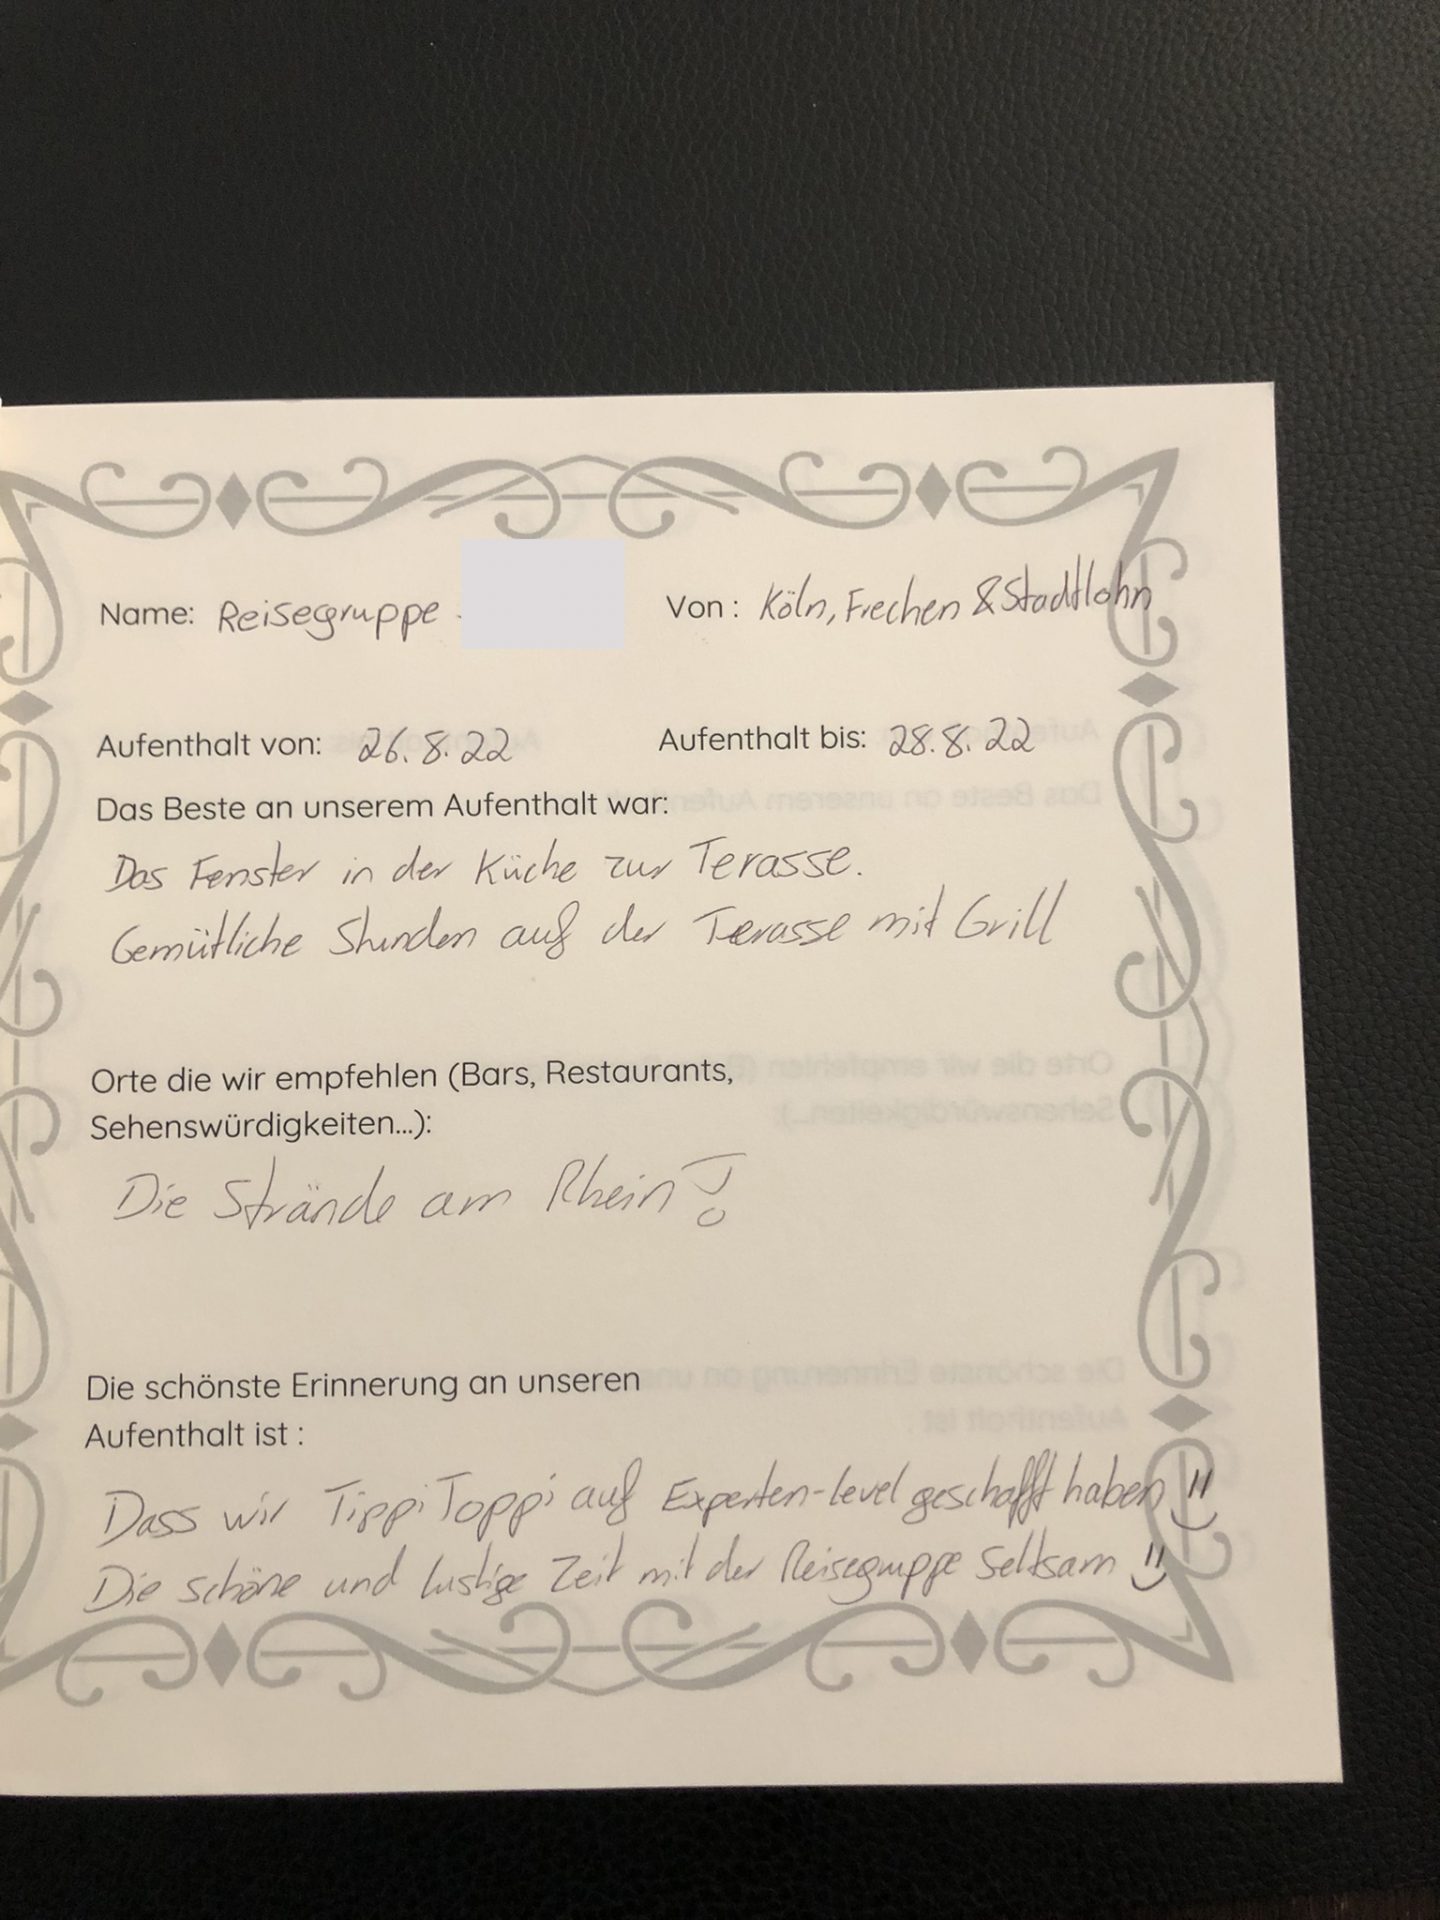 Name: Reisegruppe
Von : Köln, Frechen & Stadtlohn
Aufenthalt von: 26.8.22
Aufenthalt bis: 28.8.22
Das Beste an unserem Aufenthalt war:
Das Fenster in der Küche zur Terasse.
Gemütliche Stunden auf der Terasse mit Grill
Orte die wir empfehlen (Bars, Restaurants,
Sehenswürdigkeiten...):
Die Strände am Rhein!
Die schönste Erinnerung an unseren
Aufenthalt ist :
Dass wir TippiToppi auf Experten-level geschafft haben
Die schöne und lustige Zeit mit der Reisegruppe Seltsam